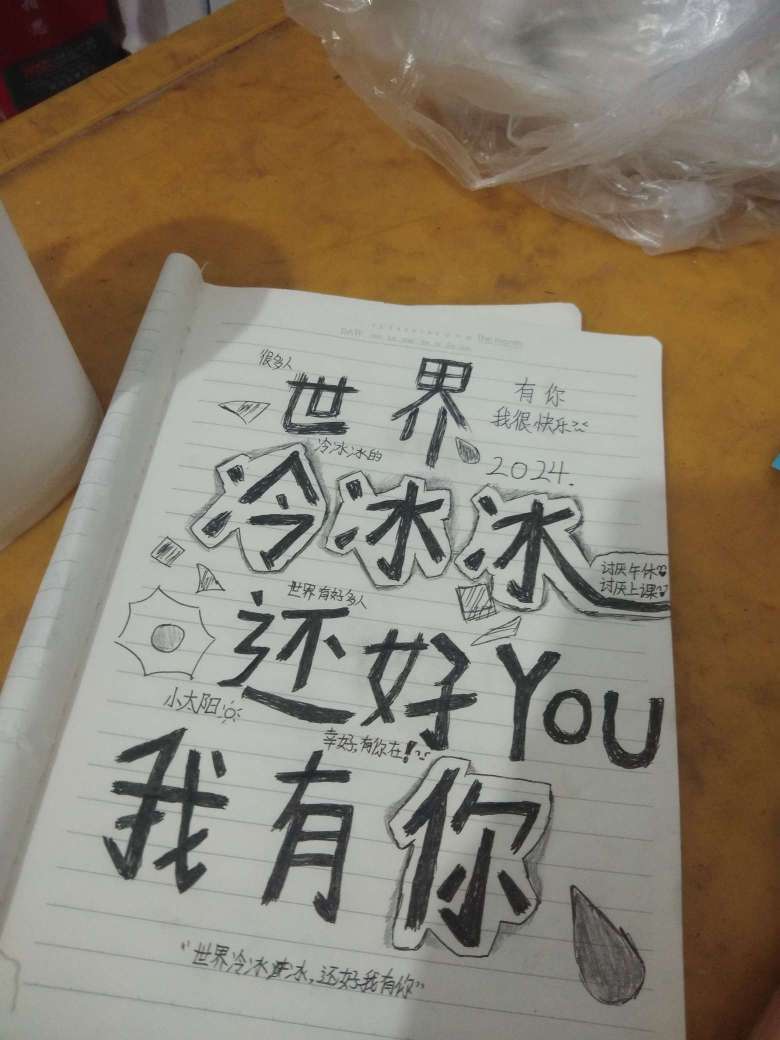 很多人
世界
有你
我很快乐
冷冰冰的
2024.
冷冰冰
讨厌午休
讨厌上课
世界有好多人
还好You
小太阳
幸好,有你在!
我有你
"世界冷冰冰,还好我有你"